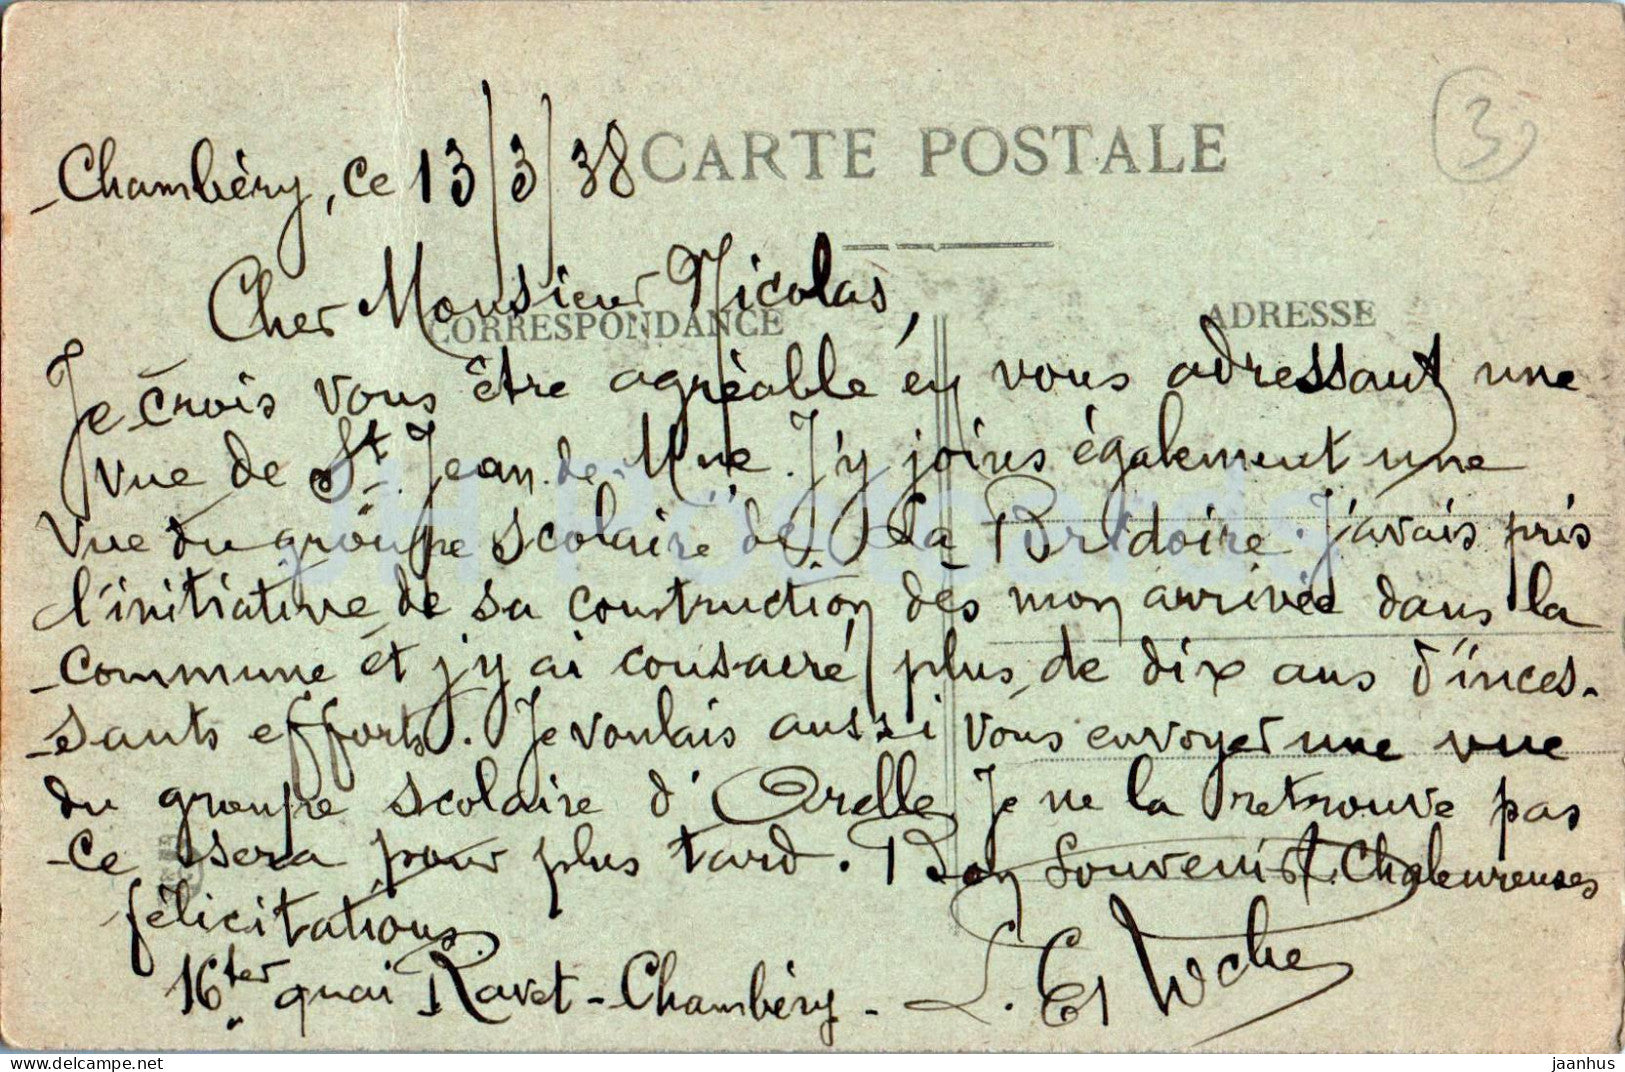 3
CARTE POSTALE
Chambéry, ce 13/3/38
Cher Monsieur Nicolas,
CORRESPONDANCE
ADRESSE
Je crois vous être agréable en vous adressant une
vue de St. Jean de Mne. J'y joins également une
vue du groupe scolaire de La Bridoire. J'avais pris
l'initiative de sa construction dès mon arrivée dans la
commune et j'y ai consacré plus de dix ans d'inces-
sants efforts. Je voulais aussi vous envoyer une vue
du groupe scolaire d'Orelle. Je ne la retrouve pas
Ce sera pour plus tard. Bon souvenir et Chaleureuses
félicitations
16ter quai Ravet - Chambéry -
jaanhus